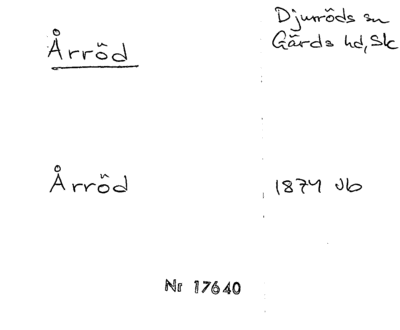 Årröd
Djurröds sn
Gärds hd, Sk
Årröd
1874 Jb
Nr 17640